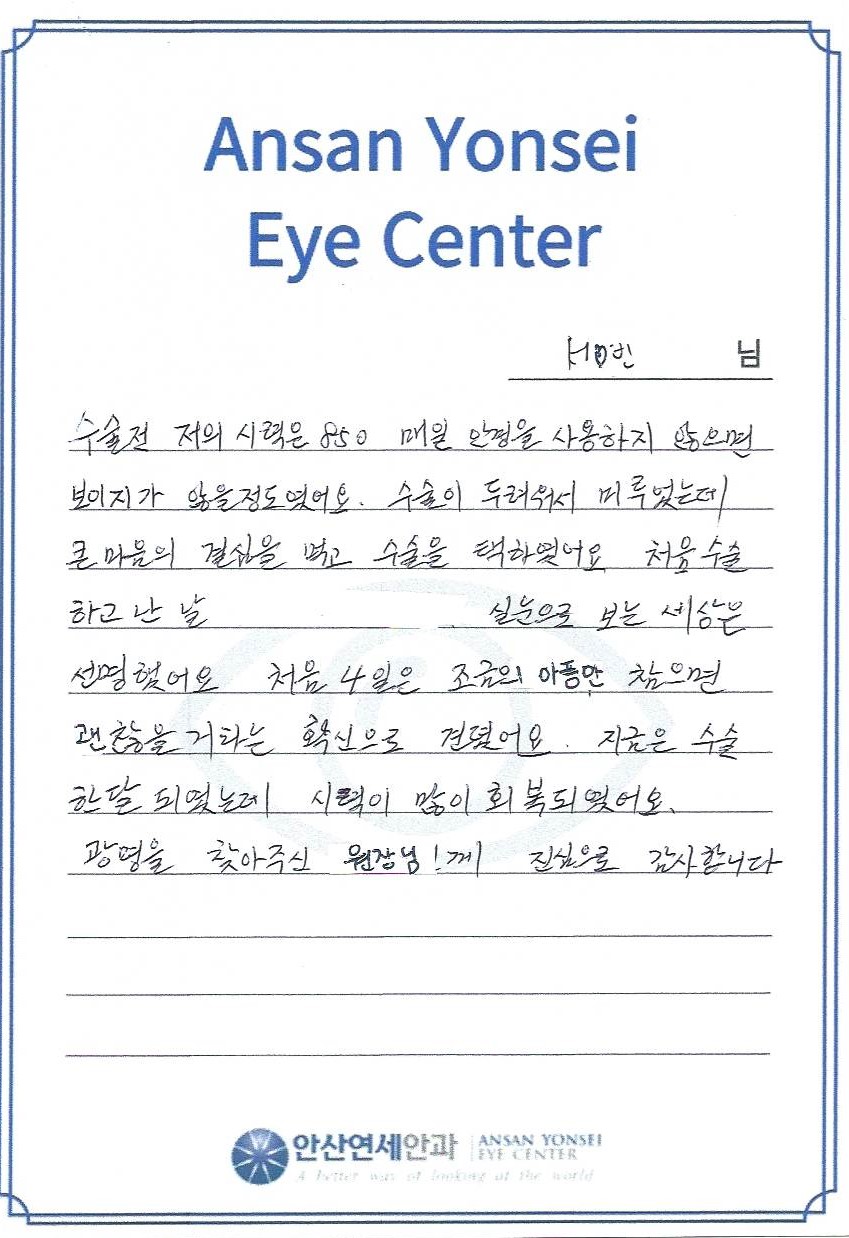 Ansan Yonsei
Eye Center
님
수술전 저의 시력은 850 매일 안경을 사용하지 않으면
보이지가 않을정도였어요. 수술이 두려워서 미루었는데
큰마음의 결심을 먹고 수술을 택하였어요 처음 수술
하고 난 날 실눈으로 보는 세상은
선명했어요 처음 4일은 조금의 아픔만 참으면
괜찮을거라는 확신으로 견뎠어요. 지금은 수술
한달 되었는데 시력이 많이 회복되었어요.
광명을 찾아주신 원장님!께 진심으로 감사합니다
안산연세안과 ANSAN YONSEI
EYE CENTER
A better way of looking at the world